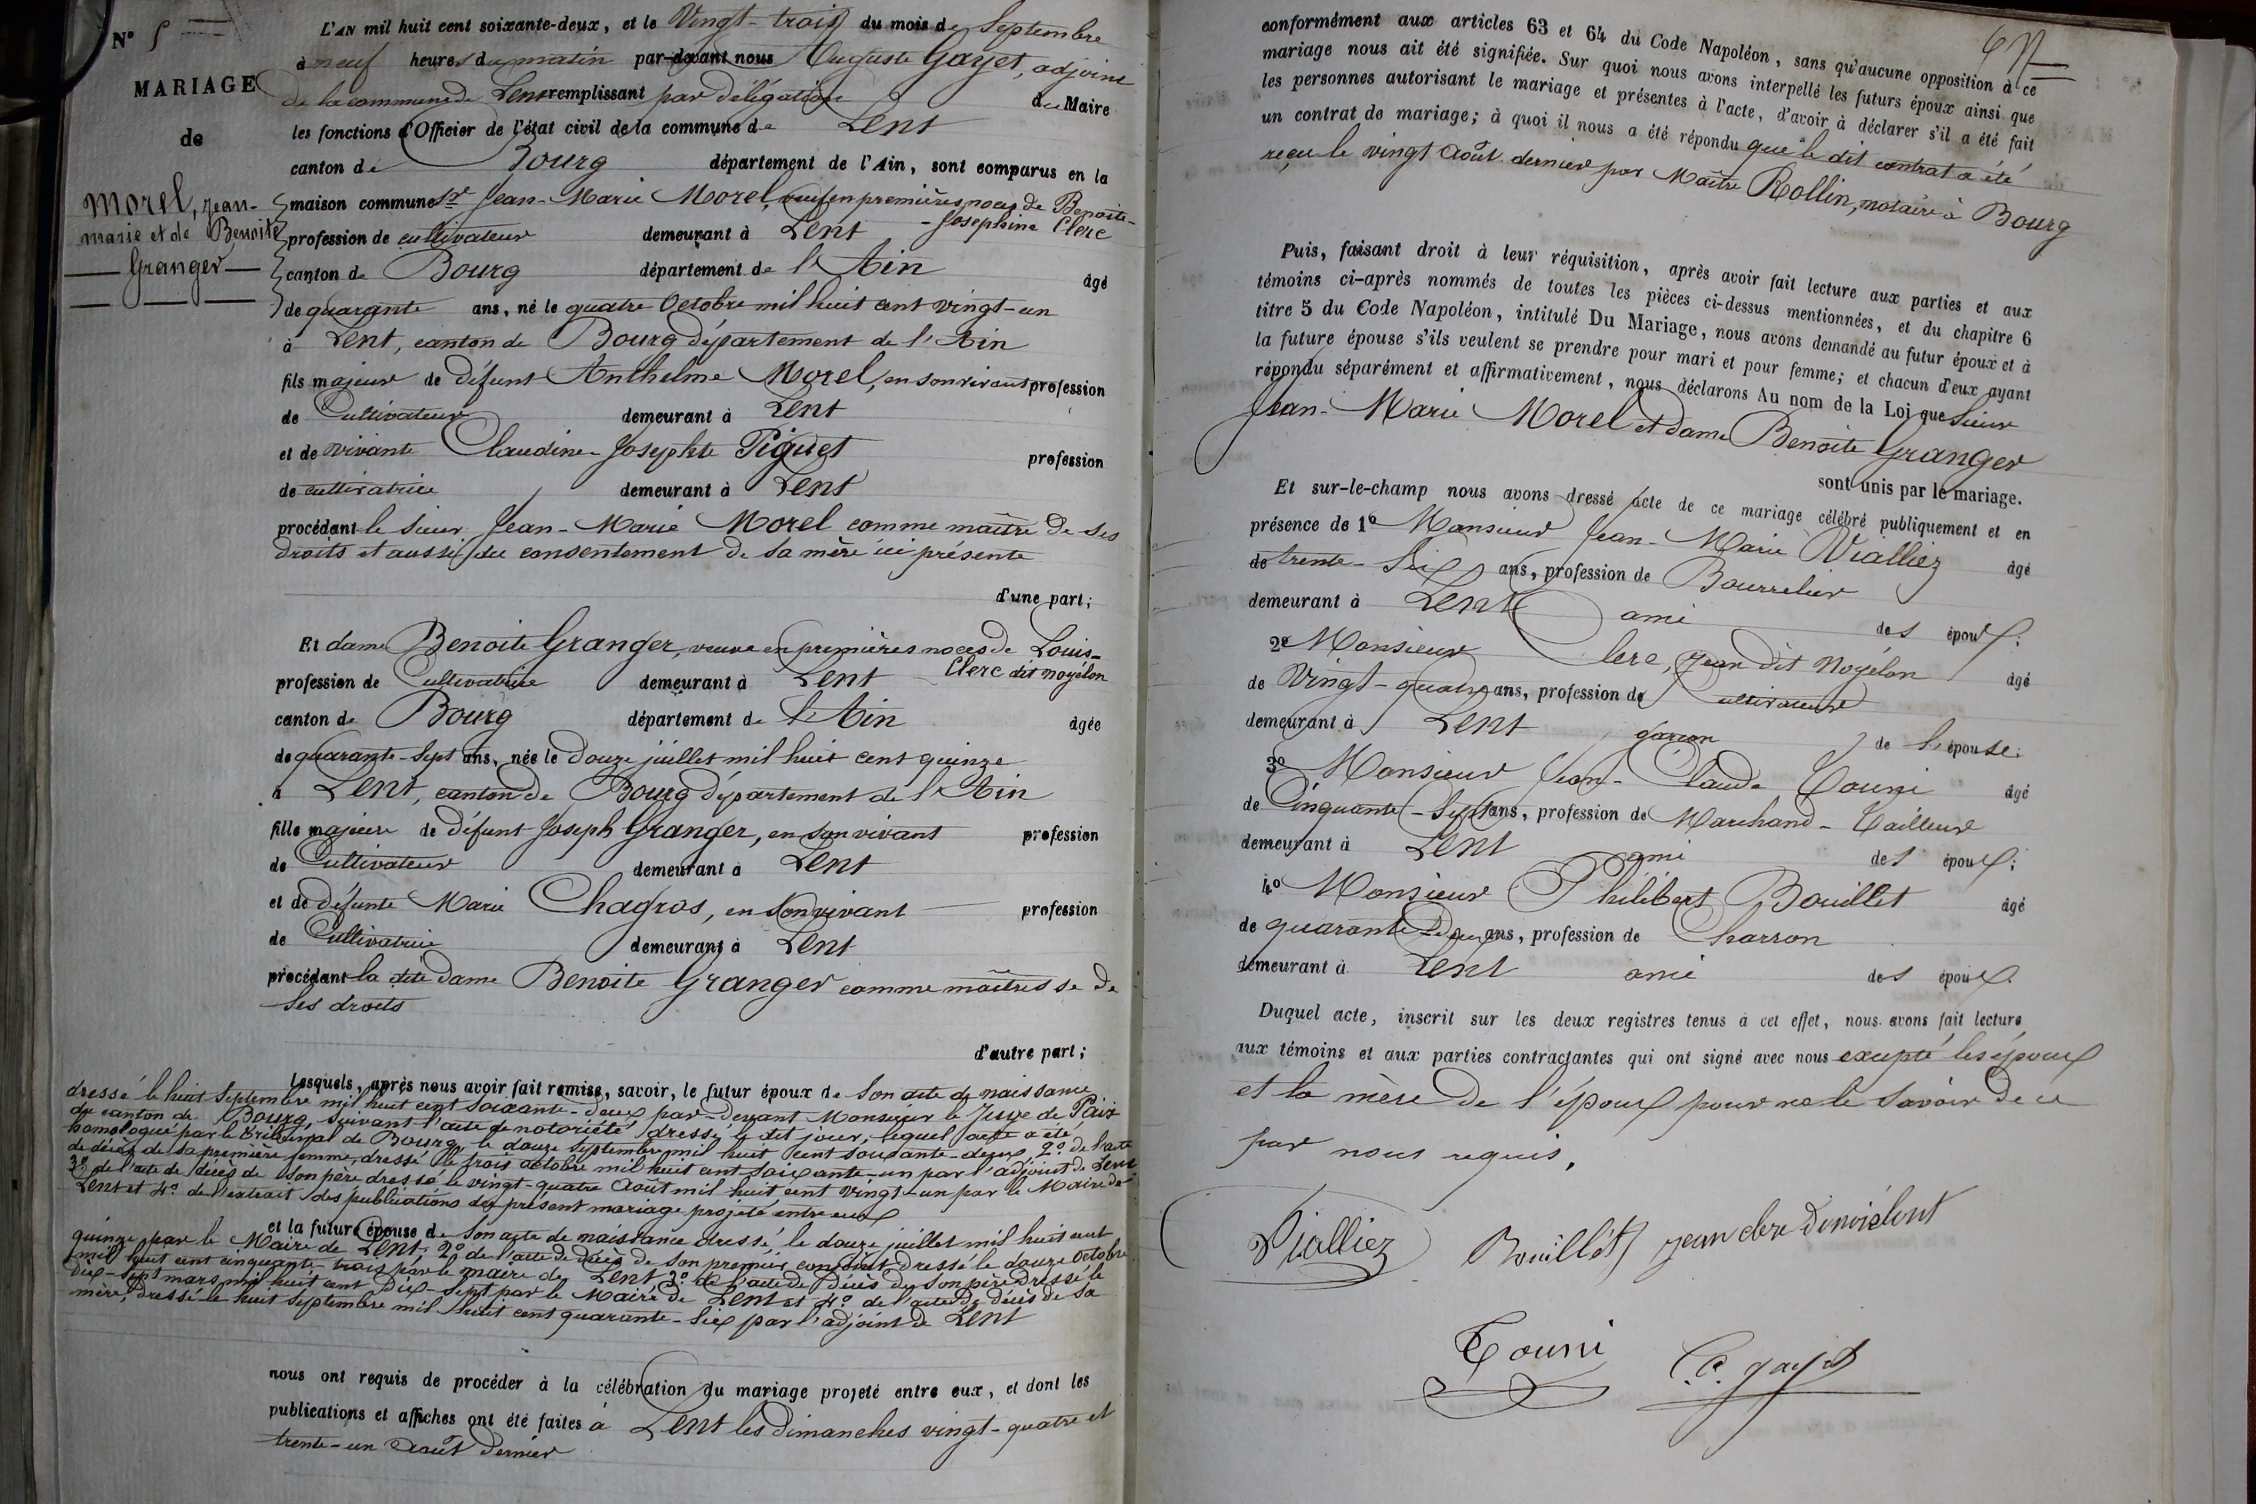 N° 5
MARIAGE
de
Morel, Jean-
marie et de Benoite
Granger
L'AN mil huit cent soixante-deux, et le Vingt-trois du mois de Septembre
à neuf heures du matin par-devant nous Auguste Gayet, adjoint
de la commune de Lent remplissant par délégation du Maire
les fonctions d'Officier de l'état civil de la commune de Lent
canton de Bourg département de l'Ain, sont comparus en la
maison commune Sr Jean-Marie Morel, veuf en premières noces de Benoite-
Josephine Clerc
profession de cultivateur demeurant à Lent
canton de Bourg département de l'Ain âgé
de quarante ans, né le quatre Octobre mil huit cent vingt-un
à Lent, canton de Bourg département de l'Ain
fils majeur de défunt Anthelme Morel, en son vivant profession
de Cultivateur demeurant à Lent
et de vivante Claudine-Josephte Piguet profession
de cultivatrice demeurant à Lent
procédant le sieur Jean-Marie Morel comme maître de ses
droits et aussi du consentement de sa mère ici présente
d'une part;
Et dame Benoite Granger, veuve en premières noces de Louis-
Clerc dit noyélon
profession de Cultivatrice demeurant à Lent
canton de Bourg département de l'Ain âgée
de quarante-sept ans, née le Douze juillet mil huit cent quinze
à Lent, canton de Bourg département de l'Ain
fille majeure de défunt Joseph Granger, en son vivant profession
de Cultivateur demeurant à Lent
et de défunte Marie Chagros, en son vivant profession
de Cultivatrice demeurant à Lent
procédant la dite dame Benoite Granger comme maîtresse de
ses droits
d'autre part;
Lesquels, après nous avoir fait remise, savoir, le futur époux de son acte de naissance
dressé le huit Septembre mil huit cent soixante-deux par-devant Monsieur le Juge de Paix
du canton de Bourg, suivant l'acte de notoriété dressé le dit jour, lequel acte a été
homologué par le tribunal de Bourg le douze Septembre mil huit cent soixante-deux, 2° de l'acte
de décès de sa première femme, dressé le trois octobre mil huit cent soixante-un par l'adjoint de Lent
3° de l'acte de décès de son père dressé le vingt-quatre Août mil huit cent vingt-un par le Maire de
Lent et 4° de l'extrait des publications du présent mariage projeté entre eux
et la future épouse de son acte de naissance dressé le douze juillet mil huit cent
quinze par le Maire de Lent, 2° de l'acte de décès de son premier conjoint dressé le douze Octobre
mil huit cent cinquante-trois par le maire de Lent 3° de l'acte de décès de son père dressé le
dix-sept mars mil huit cent dix-sept par le Maire de Lent et 4° de l'acte de décès de sa
mère, dressé le huit Septembre mil huit cent quarante-six par l'adjoint de Lent
nous ont requis de procéder à la célébration du mariage projeté entre eux, et dont les
publications et affiches ont été faites à Lent les dimanches vingt-quatre et
trente-un Août dernier
conformément aux articles 63 et 64 du Code Napoléon, sans qu'aucune opposition à ce
mariage nous ait été signifiée. Sur quoi nous avons interpellé les futurs époux ainsi que
les personnes autorisant le mariage et présentes à l'acte, d'avoir à déclarer s'il a été fait
un contrat de mariage; à quoi il nous a été répondu que le dit contrat a été
reçu le vingt Août dernier par Maître Rollin, notaire à Bourg
Puis, faisant droit à leur réquisition, après avoir fait lecture aux parties et aux
témoins ci-après nommés de toutes les pièces ci-dessus mentionnées, et du chapitre 6
titre 5 du Code Napoléon, intitulé Du Mariage, nous avons demandé au futur époux et à
la future épouse s'ils veulent se prendre pour mari et pour femme; et chacun d'eux ayant
répondu séparément et affirmativement, nous déclarons Au nom de la Loi que Sieur
Jean-Marie Morel et dame Benoite Granger
sont unis par le mariage.
Et sur-le-champ nous avons dressé acte de ce mariage célébré publiquement et en
présence de 1° Monsieur Jean-Marie Vialliez âgé
de trente-six ans, profession de Bourrelier
demeurant à Lent ami des époux;
2° Monsieur Clerc, Jean dit Noyélon âgé
de Vingt-quatre ans, profession de Cultivateur
demeurant à Lent garçon de l'épouse;
3° Monsieur Jean-Claude Tourni âgé
de Cinquante-Sept ans, profession de Marchand-Tailleur
demeurant à Lent ami des époux;
4° Monsieur Philibert Bouillet âgé
de quarante-deux ans, profession de Charron
demeurant à Lent ami des époux.
Duquel acte, inscrit sur les deux registres tenus à cet effet, nous avons fait lecture
aux témoins et aux parties contractantes qui ont signé avec nous excepté les époux
et la mère de l'époux pour ne le savoir de ce
par nous requis.
Vialliez Bouillet jean clerc
Tourni gayet